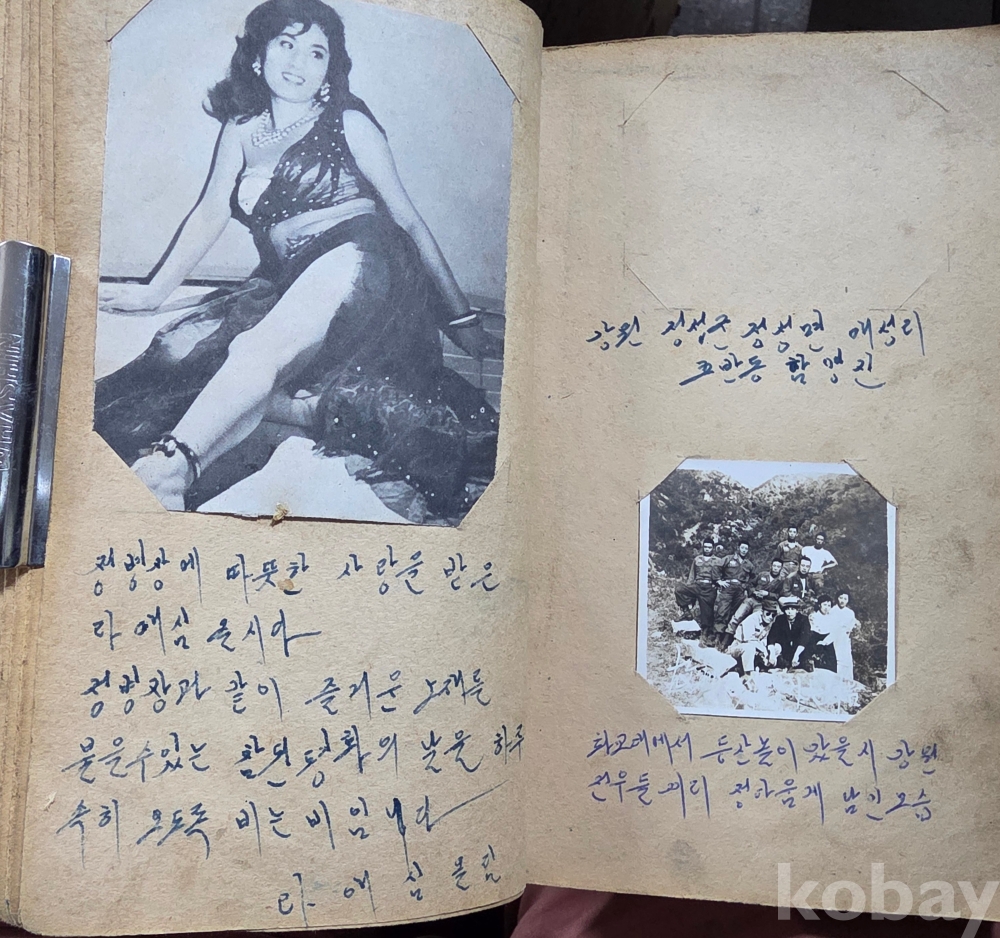 정병장에 따뜻한 사랑을 받은
라 애심 올시다
정병장과 같이 즐거운 노래를
부를수있는 참된평화의 날을 하루
속히 오도록 비는 비임니다
라 애 심 올림
강원 정선군 정선면 애선리
함 영진
에서 등산놀이 갔을시 강원
전우들끼리 정다움게 남긴모습
kobay